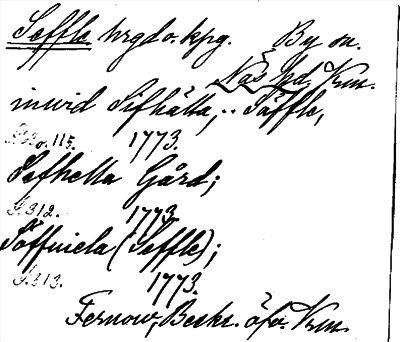 Seffle hrgd o. kpg. By sn.
Näs hd, Vrm.
invid Sifhälla, .. Säffle,
S. 30. 115. 1773.
Sefhella Gård;
S. 312. 1773.
Söffniela (Seffle);
S. 313. 1773.
Fernow, Beskr. öfv. Vrm.